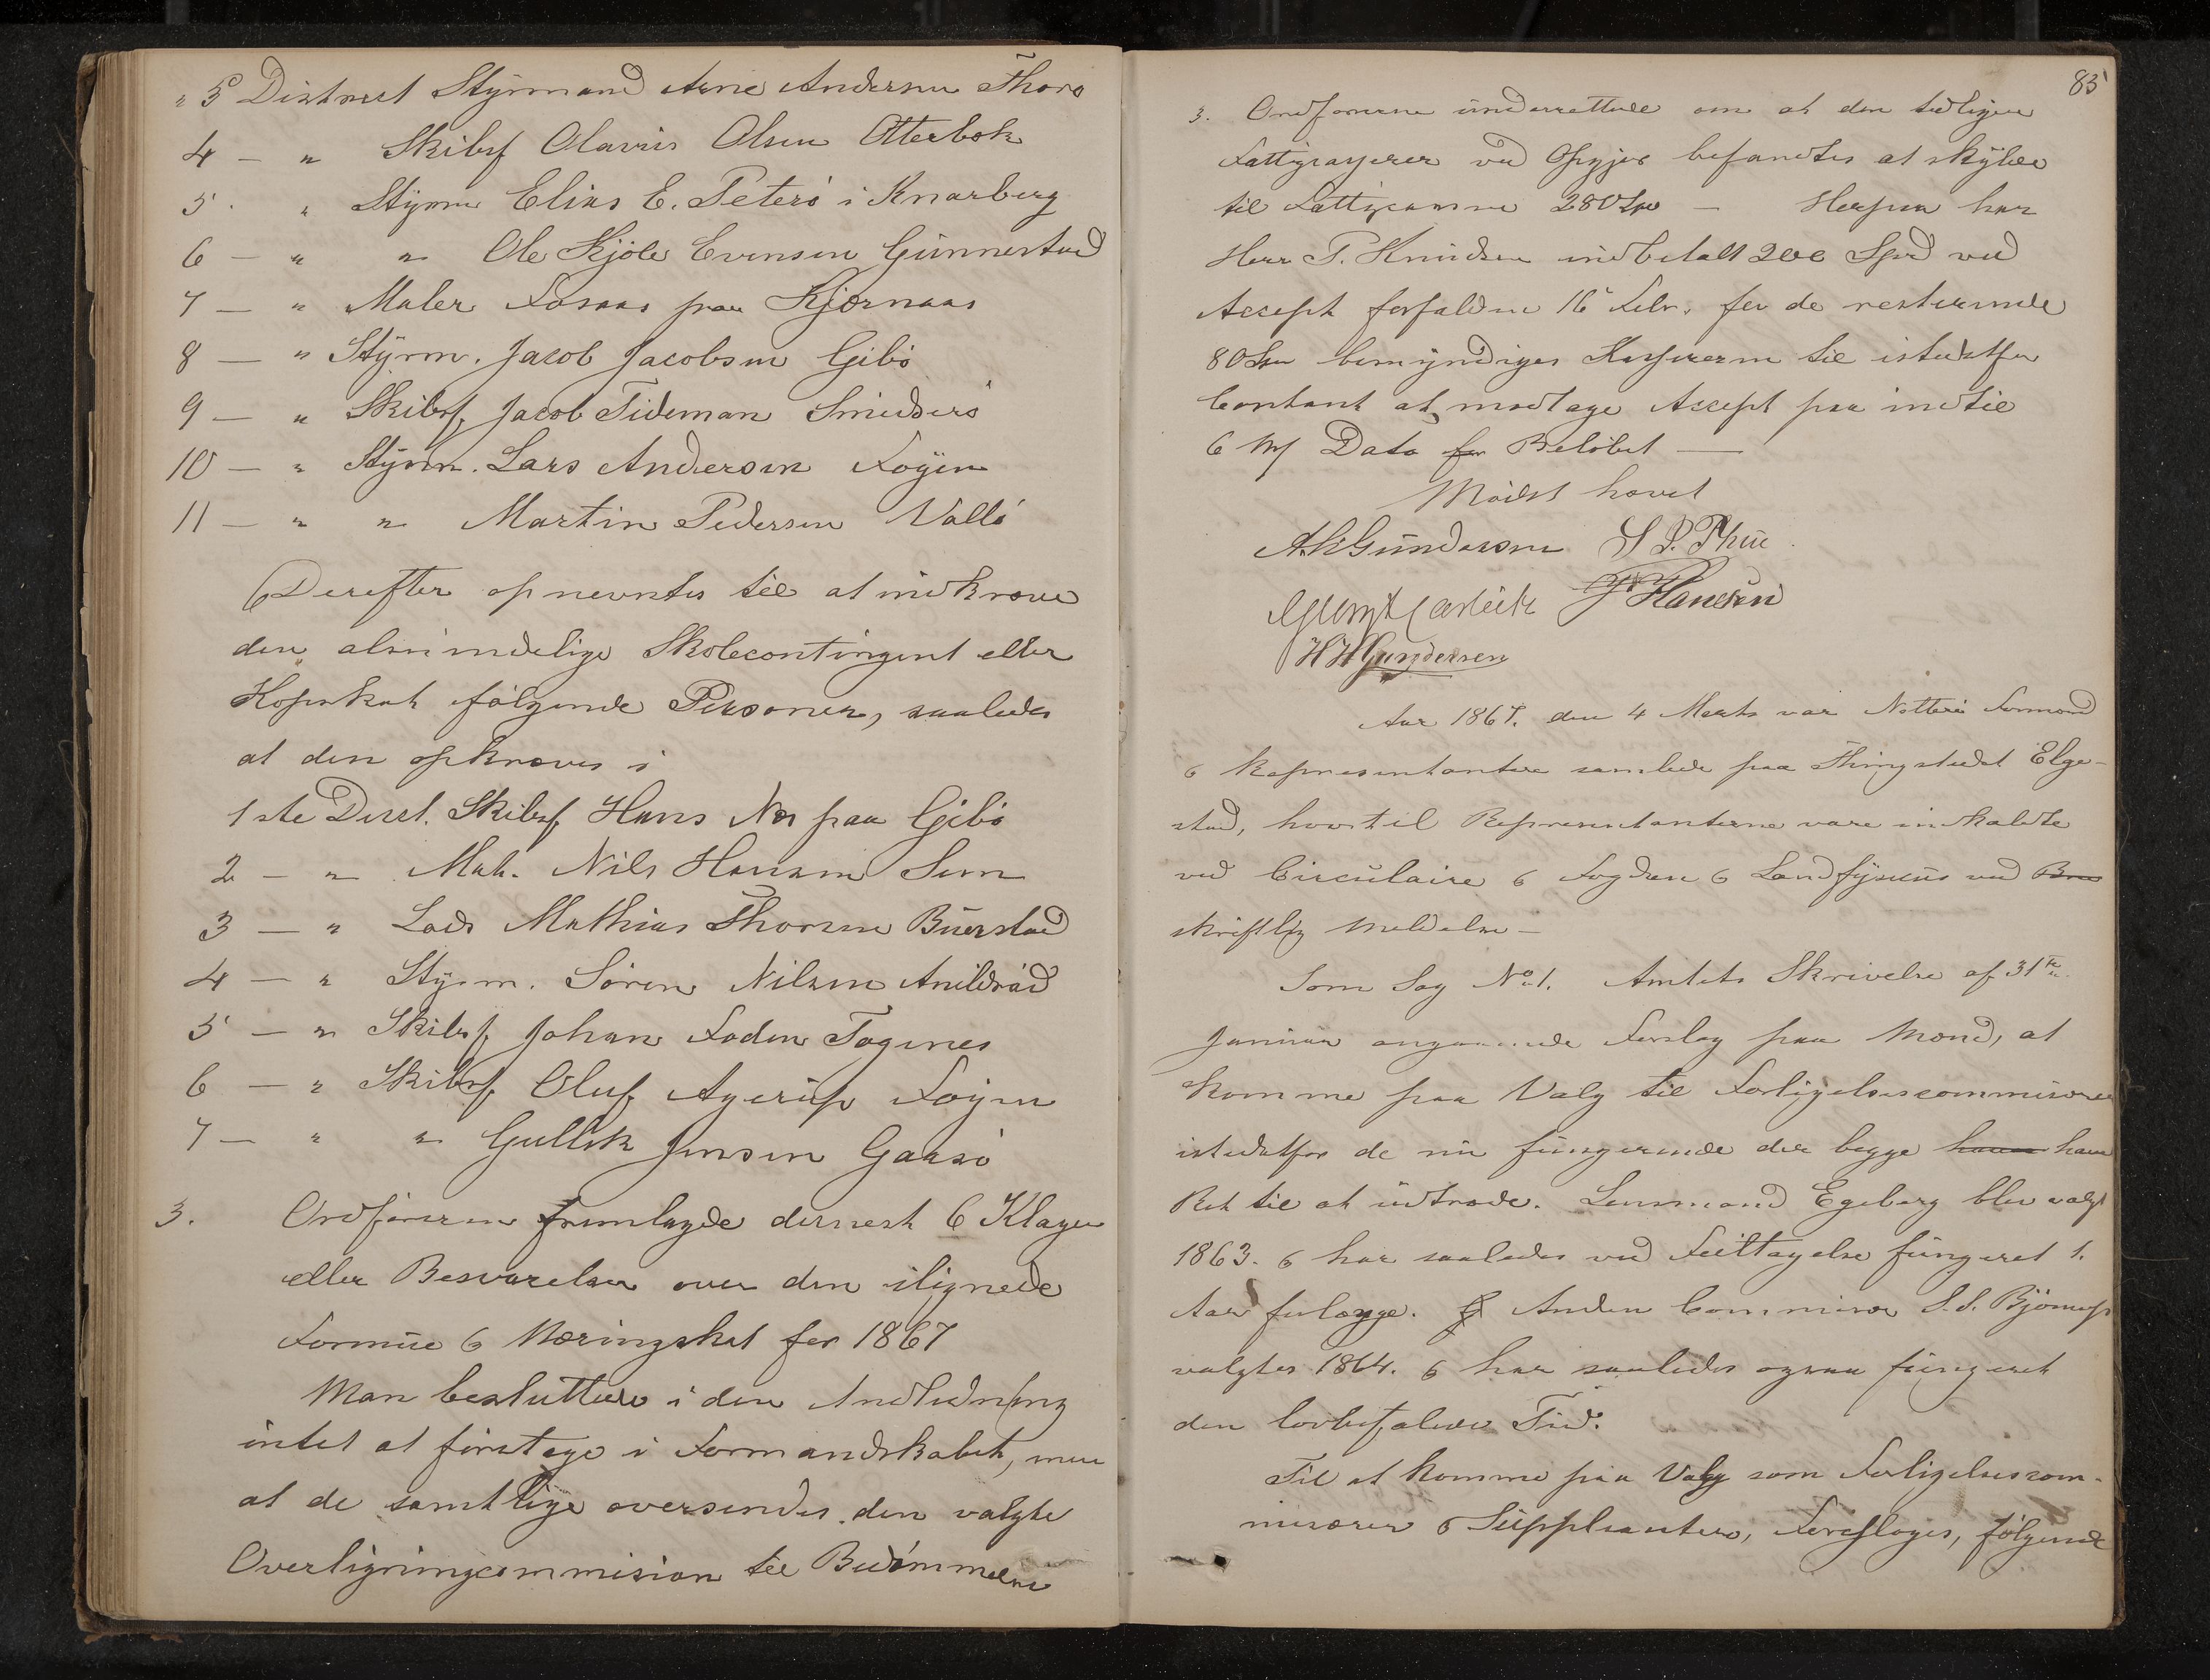 " 3 District Styrmand Arne Andersen Thorø
4 — " Skibsf Olavus Olsen Otterbek
5 . " Styrm Elias E. Petersö i Knarberg
6 — " " Ole Kjöle Evensen Gunnestad
7 — " Maler Fosaas paa Kjernaas
8 — " Styrm. Jacob Jacobsen Gibö
9 — " Skibsf, Jacob Tideman Smidsrö
10 — " Styrm. Lars Andersen Föyen
11 — " " Martin Pedersen Vallö
Derefter opnevntes til at indkræve
den almindelige Skolecontingent eller
Kopskat fölgende Personer, saaledes
at den opkræves i
1ste Dist. Skibsf Hans Næs paa Gibö
2 — " Mat. Nils Hansen Sem
3 — " Lods Mathias Thorsen Buerstad
4 — " Styrm. Sören Nilsen Arildsröd
5 — " Skibsf, Johan Foden Tögenes
6 — " Skibsf Oluf Agerup Föyen
7 — " " Gullik Jensen Gaasö
3. Ordföreren fremlagde dernest 6 Klager
eller Besværelser over den ilignede
Formue & Næringskat for 1867
Man besluttede i den Andledning
intet at foretage i Formandskabet, men
at de samtlige oversendes den valgte
Overligningscommision til Bedömmelse
85
3. Ordföreren underrettede om at den tidligere
Fattigcasserer ved Opgjör befandtes at skylde
til Fattigcassen 280 Spd — Herpaa har
Herr P. Knudsen indbetalt 200 Spd ved
Accept forfalden 16 Febr. for de resterende
80 Spd bemyndiges Kassereren til istedetfor
Contant at modtage Accept paa indtil
6 M/ Dato for Belöbet —
Mödet hævet
A.H. Gundersen S. P. Thue
H Hansen
H H Gundersen
Aar 1867. den 4 Marts var Nötterö Formænd
& Representantere samlede paa Thingstedet Elge-
stad, hvortil Representanterne vare indkaldte
ved Circulaire & Fogden & Landfysicus ved
skriftlig Meldelse —
Som Sag No 1. Amtets Skrivelse af 31te
Januar angaaende Forslag paa Mænd, at
komme paa Valg til Forligelsescommisærer
istedetfor de nu fungerende der begge have
Ret til at udtræde. Lensmand Egeberg blev valgt
1863. & har saaledes ved Feiltagelse fungeret 1.
Aar forlænge. Anden Commisær S. S. Björnup
valgtes 1864. & har saaledes ogsaa fungeret
den lovbefalede Tid.
Til at komme paa Valg som Forligelsescom-
misærer & Suppleanter, foreslages, fölgende